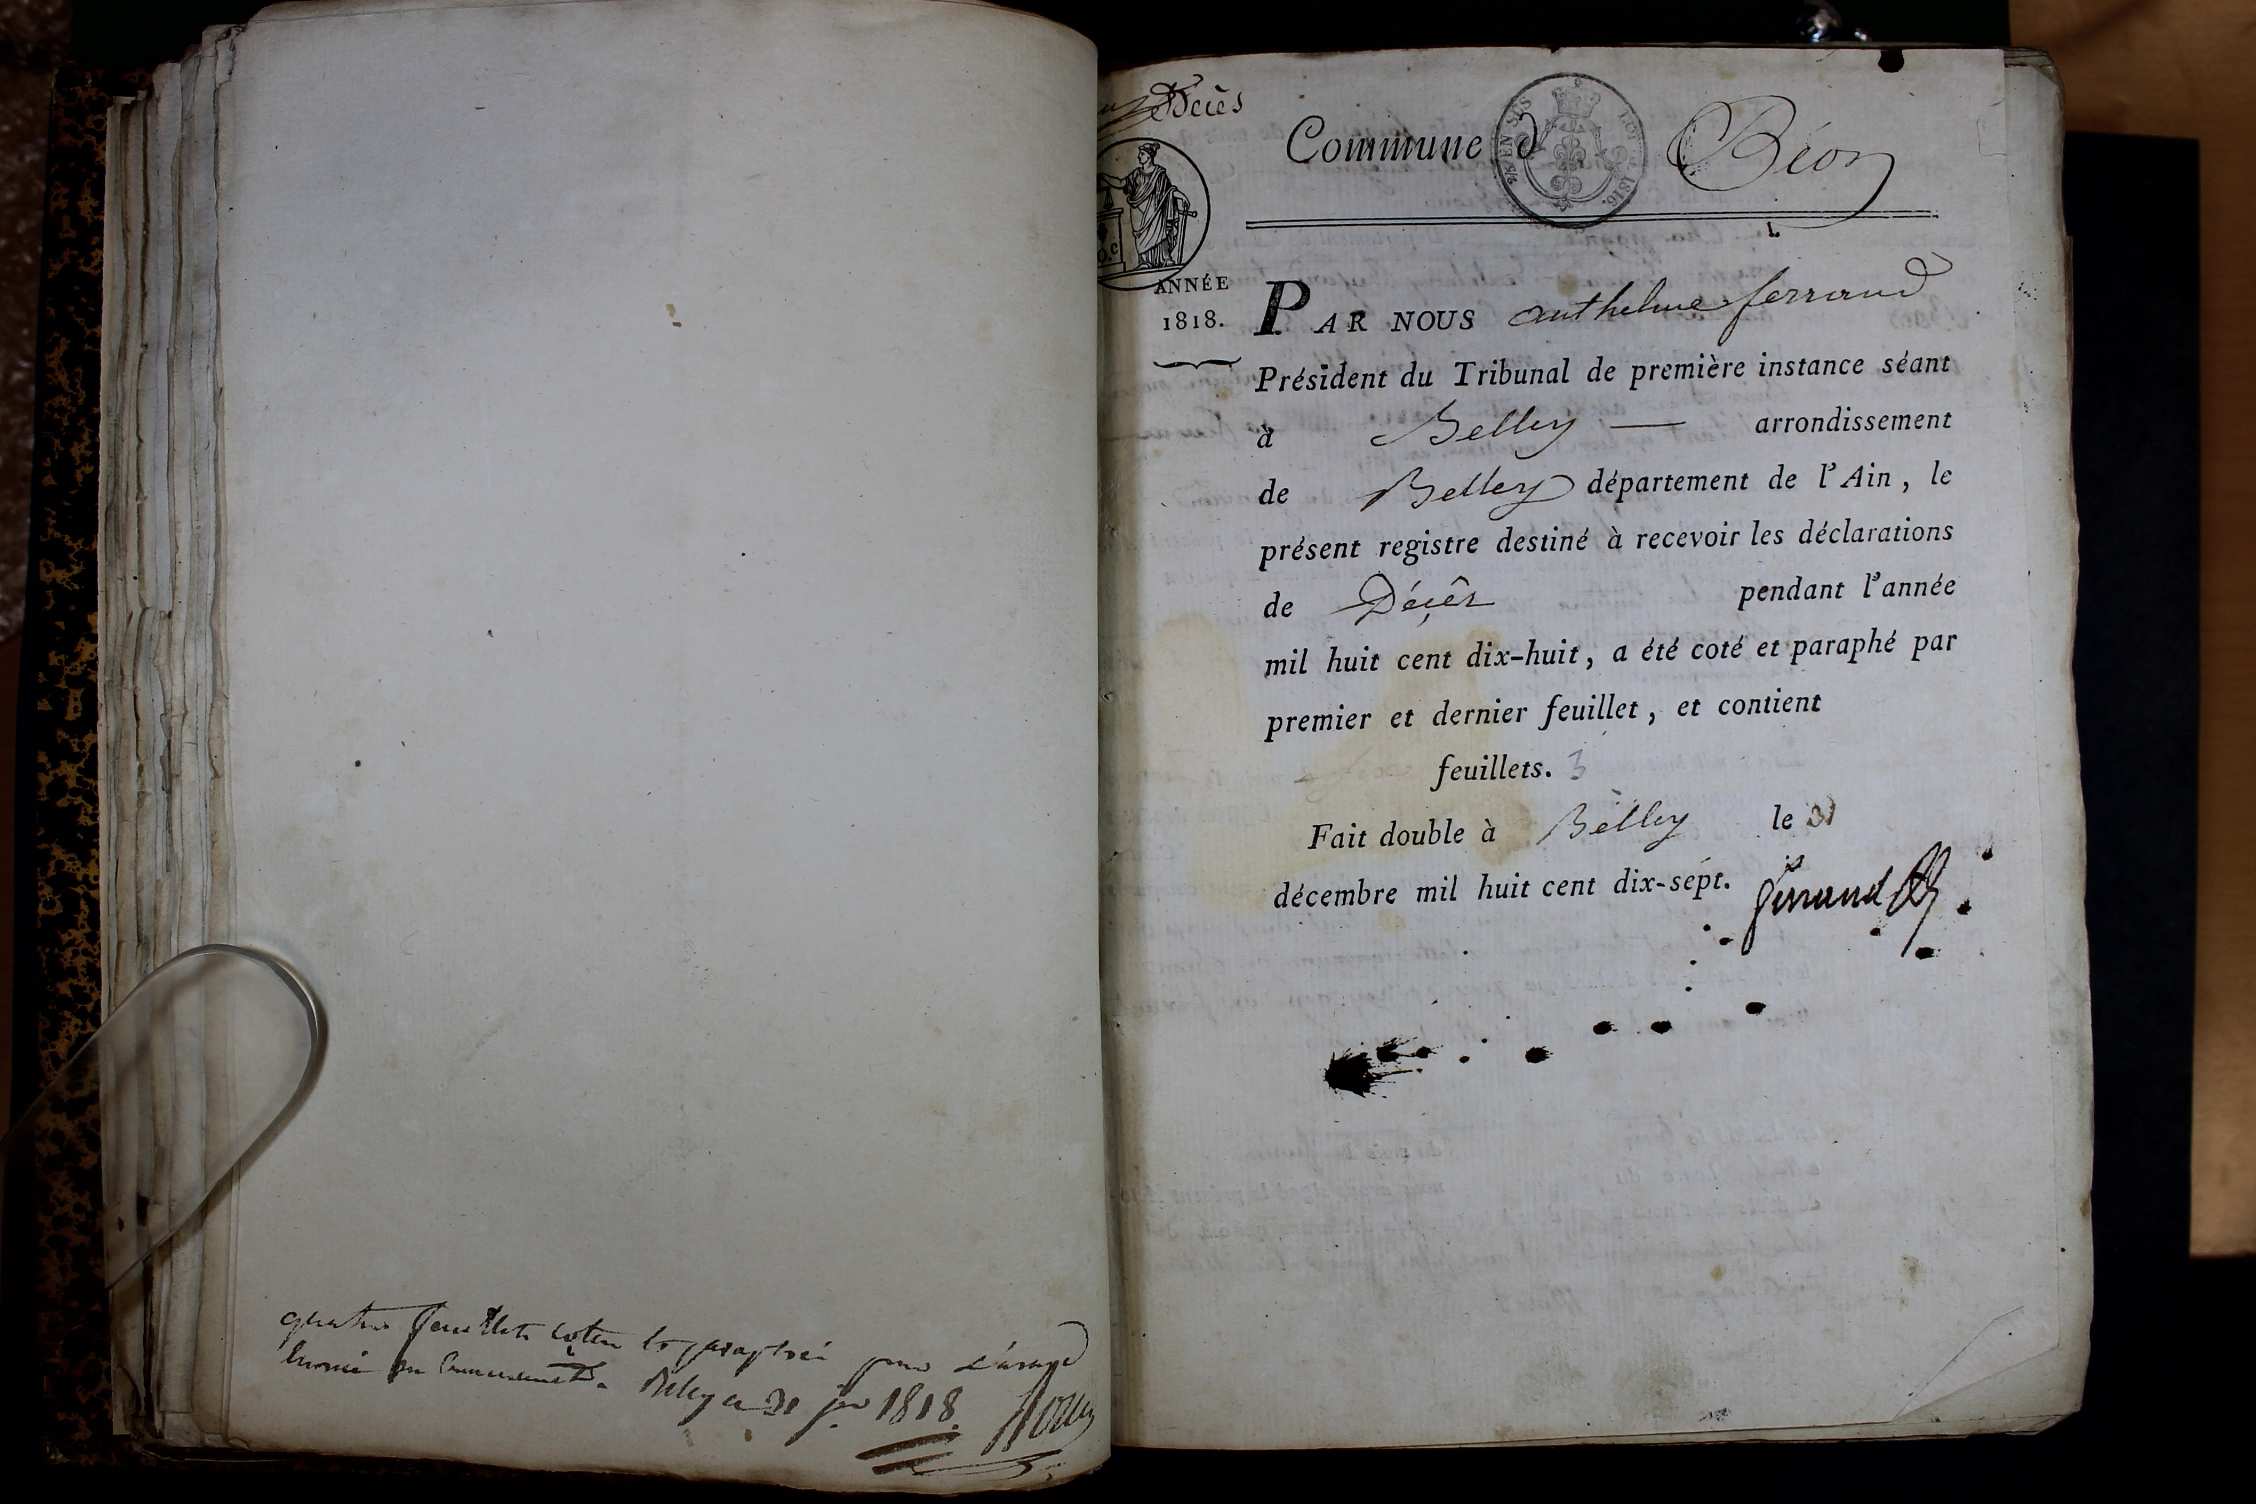 quatre feuillets cotés et paraphés pour l'usage
Belley ce 31 1818.
Décès
Commune d Béon
EN SUS
1816.
ANNÉE
1818.
PAR NOUS anthelme ferrand
Président du Tribunal de première instance séant
à Belley — arrondissement
de Belley département de l'Ain, le
présent registre destiné à recevoir les déclarations
de Décès pendant l'année
mil huit cent dix-huit, a été coté et paraphé par
premier et dernier feuillet, et contient
feuillets. 3
Fait double à Belley le 31
décembre mil huit cent dix-sept.
ferrand